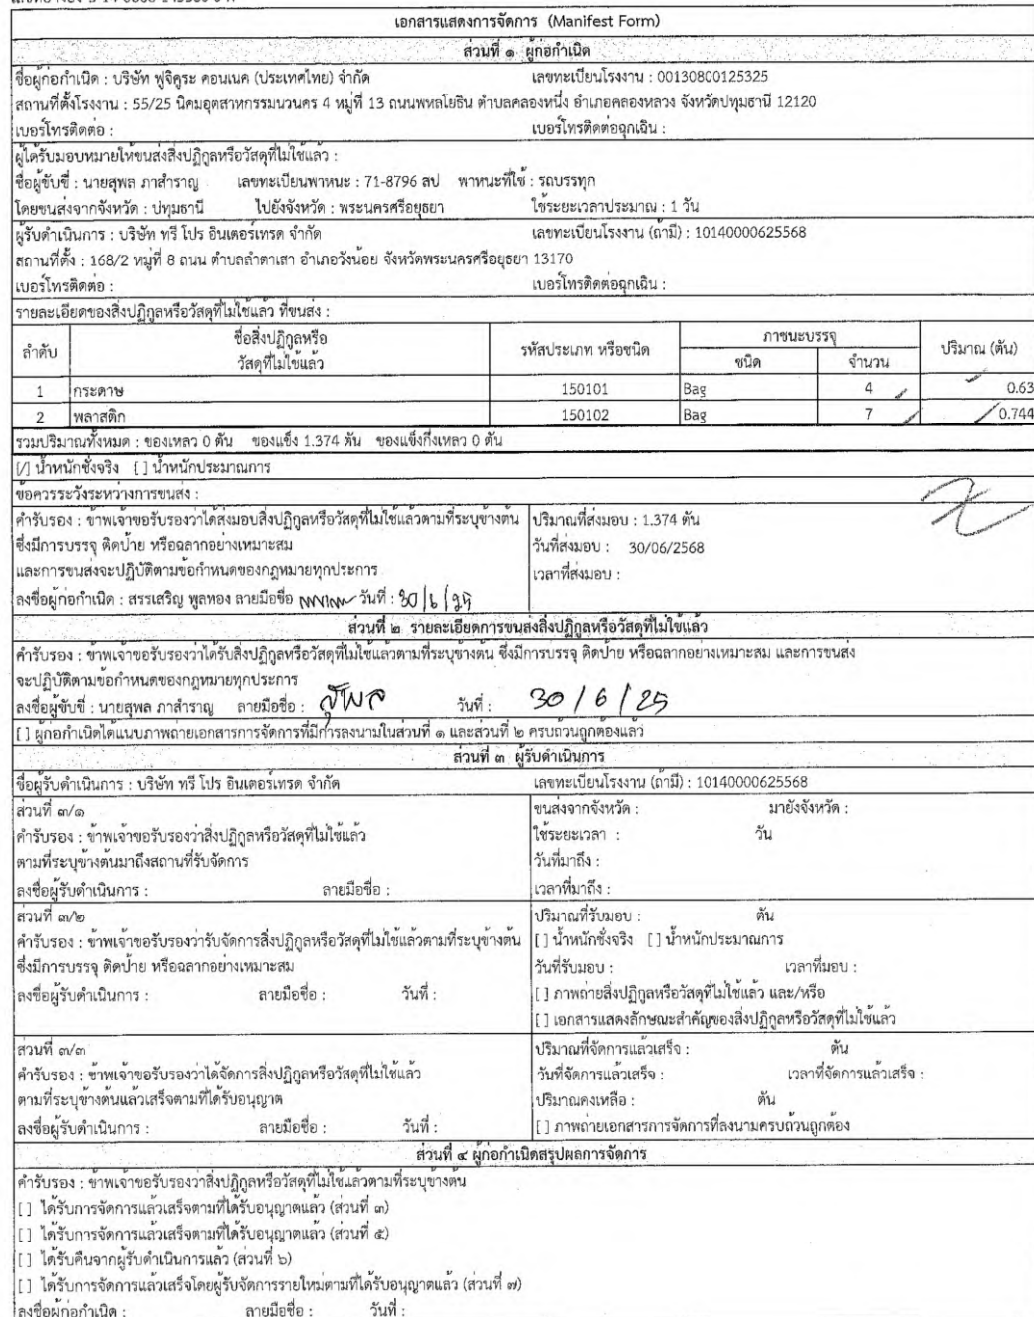 เอกสารแสดงการจัดการ (Manifest Form)
ส่วนที่ ๑ ผู้ก่อกำเนิด
ชื่อผู้ก่อกำเนิด : บริษัท ฟูจิคูระ คอนเนค (ประเทศไทย) จำกัด เลขทะเบียนโรงงาน : 00130800125325
สถานที่ตั้งโรงงาน : 55/25 นิคมอุตสาหกรรมนวนคร 4 หมู่ที่ 13 ถนนพหลโยธิน ตำบลคลองหนึ่ง อำเภอคลองหลวง จังหวัดปทุมธานี 12120
เบอร์โทรติดต่อ : เบอร์โทรติดต่อฉุกเฉิน :
ผู้ได้รับมอบหมายให้ขนส่งสิ่งปฏิกูลหรือวัสดุที่ไม่ใช้แล้ว :
ชื่อผู้ขับขี่ : นายสุพล ภาสำราญ เลขทะเบียนพาหนะ : 71-8796 สป พาหนะที่ใช้ : รถบรรทุก
โดยขนส่งจากจังหวัด : ปทุมธานี ไปยังจังหวัด : พระนครศรีอยุธยา ใช้ระยะเวลาประมาณ : 1 วัน
ผู้รับดำเนินการ : บริษัท ทรี โปร อินเตอร์เทรด จำกัด เลขทะเบียนโรงงาน (ถ้ามี) : 10140000625568
สถานที่ตั้ง : 168/2 หมู่ที่ 8 ถนน ตำบลลำตาเสา อำเภอวังน้อย จังหวัดพระนครศรีอยุธยา 13170
เบอร์โทรติดต่อ : เบอร์โทรติดต่อฉุกเฉิน :
รายละเอียดของสิ่งปฏิกูลหรือวัสดุที่ไม่ใช้แล้ว ที่ขนส่ง :
ลำดับ ชื่อสิ่งปฏิกูลหรือ วัสดุที่ไม่ใช้แล้ว รหัสประเภท หรือชนิด ภาชนะบรรจุ ปริมาณ (ตัน)
ชนิด จำนวน
1 กระดาษ 150101 Bag 4 0.63
2 พลาสติก 150102 Bag 7 0.744
รวมปริมาณทั้งหมด : ของเหลว 0 ตัน ของแข็ง 1.374 ตัน ของแข็งกึ่งเหลว 0 ตัน
[/] น้ำหนักชั่งจริง [ ] น้ำหนักประมาณการ
ข้อควรระวังระหว่างการขนส่ง :
คำรับรอง : ข้าพเจ้าขอรับรองว่าได้ส่งมอบสิ่งปฏิกูลหรือวัสดุที่ไม่ใช้แล้วตามที่ระบุข้างต้น ปริมาณที่ส่งมอบ : 1.374 ตัน
ซึ่งมีการบรรจุ ติดป้าย หรือฉลากอย่างเหมาะสม วันที่ส่งมอบ : 30/06/2568
และการขนส่งจะปฏิบัติตามข้อกำหนดของกฎหมายทุกประการ เวลาที่ส่งมอบ :
ลงชื่อผู้ก่อกำเนิด : สรรเสริญ พูลทอง ลายมือชื่อ วันที่ : 30/6/25
ส่วนที่ ๒ รายละเอียดการขนส่งสิ่งปฏิกูลหรือวัสดุที่ไม่ใช้แล้ว
คำรับรอง : ข้าพเจ้าขอรับรองว่าได้รับสิ่งปฏิกูลหรือวัสดุที่ไม่ใช้แล้วตามที่ระบุข้างต้น ซึ่งมีการบรรจุ ติดป้าย หรือฉลากอย่างเหมาะสม และการขนส่ง
จะปฏิบัติตามข้อกำหนดของกฎหมายทุกประการ
ลงชื่อผู้ขับขี่ : นายสุพล ภาสำราญ ลายมือชื่อ : สุพล วันที่ : 30/6/25
[ ] ผู้ก่อกำเนิดได้แนบภาพถ่ายเอกสารการจัดการที่มีการลงนามในส่วนที่ ๑ และส่วนที่ ๒ ครบถ้วนถูกต้องแล้ว
ส่วนที่ ๓ ผู้รับดำเนินการ
ชื่อผู้รับดำเนินการ : บริษัท ทรี โปร อินเตอร์เทรด จำกัด เลขทะเบียนโรงงาน (ถ้ามี) : 10140000625568
ส่วนที่ ๓/๑ ขนส่งจากจังหวัด : มายังจังหวัด :
คำรับรอง : ข้าพเจ้าขอรับรองว่าสิ่งปฏิกูลหรือวัสดุที่ไม่ใช้แล้ว ใช้ระยะเวลา : วัน
ตามที่ระบุข้างต้นมาถึงสถานที่รับจัดการ วันที่มาถึง :
ลงชื่อผู้รับดำเนินการ : ลายมือชื่อ : เวลาที่มาถึง :
ส่วนที่ ๓/๒ ปริมาณที่รับมอบ : ตัน
คำรับรอง : ข้าพเจ้าขอรับรองว่ารับจัดการสิ่งปฏิกูลหรือวัสดุที่ไม่ใช้แล้วตามที่ระบุข้างต้น [ ] น้ำหนักชั่งจริง [ ] น้ำหนักประมาณการ
ซึ่งมีการบรรจุ ติดป้าย หรือฉลากอย่างเหมาะสม วันที่รับมอบ : เวลาที่มอบ :
ลงชื่อผู้รับดำเนินการ : ลายมือชื่อ : วันที่ : [ ] ภาพถ่ายสิ่งปฏิกูลหรือวัสดุที่ไม่ใช้แล้ว และ/หรือ
[ ] เอกสารแสดงลักษณะสำคัญของสิ่งปฏิกูลหรือวัสดุที่ไม่ใช้แล้ว
ส่วนที่ ๓/๓ ปริมาณที่จัดการแล้วเสร็จ : ตัน
คำรับรอง : ข้าพเจ้าขอรับรองว่าได้จัดการสิ่งปฏิกูลหรือวัสดุที่ไม่ใช้แล้ว วันที่จัดการแล้วเสร็จ : เวลาที่จัดการแล้วเสร็จ :
ตามที่ระบุข้างต้นแล้วเสร็จตามที่ได้รับอนุญาต ปริมาณคงเหลือ : ตัน
ลงชื่อผู้รับดำเนินการ : ลายมือชื่อ : วันที่ : [ ] ภาพถ่ายเอกสารการจัดการที่ลงนามครบถ้วนถูกต้อง
ส่วนที่ ๔ ผู้ก่อกำเนิดสรุปผลการจัดการ
คำรับรอง : ข้าพเจ้าขอรับรองว่าสิ่งปฏิกูลหรือวัสดุที่ไม่ใช้แล้วตามที่ระบุข้างต้น
[ ] ได้รับการจัดการแล้วเสร็จตามที่ได้รับอนุญาตแล้ว (ส่วนที่ ๓)
[ ] ได้รับการจัดการแล้วเสร็จตามที่ได้รับอนุญาตแล้ว (ส่วนที่ ๕)
[ ] ได้รับคืนจากผู้รับดำเนินการแล้ว (ส่วนที่ ๖)
[ ] ได้รับการจัดการแล้วเสร็จโดยผู้รับจัดการรายใหม่ตามที่ได้รับอนุญาตแล้ว (ส่วนที่ ๗)
ลงชื่อผู้ก่อกำเนิด : ลายมือชื่อ : วันที่ :